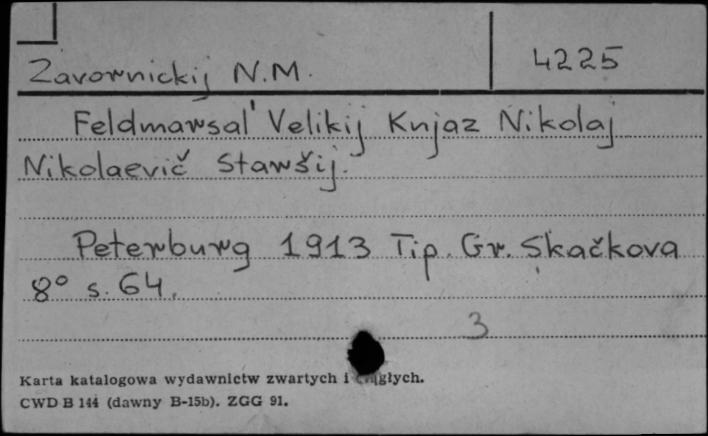 Zavornickij N.M.
4225
Feldmarsal' Velikij Knjaz Nikolaj
Nikolaevič Staršij.
Peterburg 1913 Tip. Gr. Skačkova
8° s. 64.
3
Karta katalogowa wydawnictw zwartych i ciągłych.
CWD B 144 (dawny B-15b). ZGG 91.